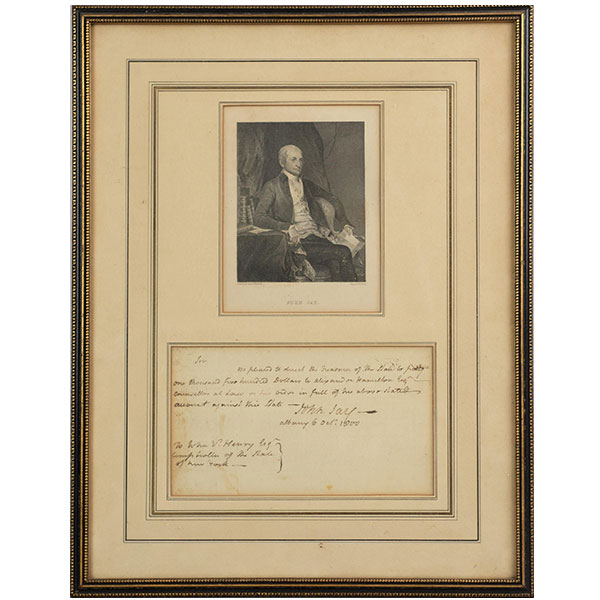 JOHN JAY.
Sir
Be pleased to direct the Treasurer of the State to
one thousand five hundred Dollars to Alexander Hamilton Esqr
Counsellor at Law or his order in full of his above stated
account against this State —
John Jay —
Albany 6 Octr. 1800
To Wm. V. Henry Esqr
Comptroller of the State
of New York —